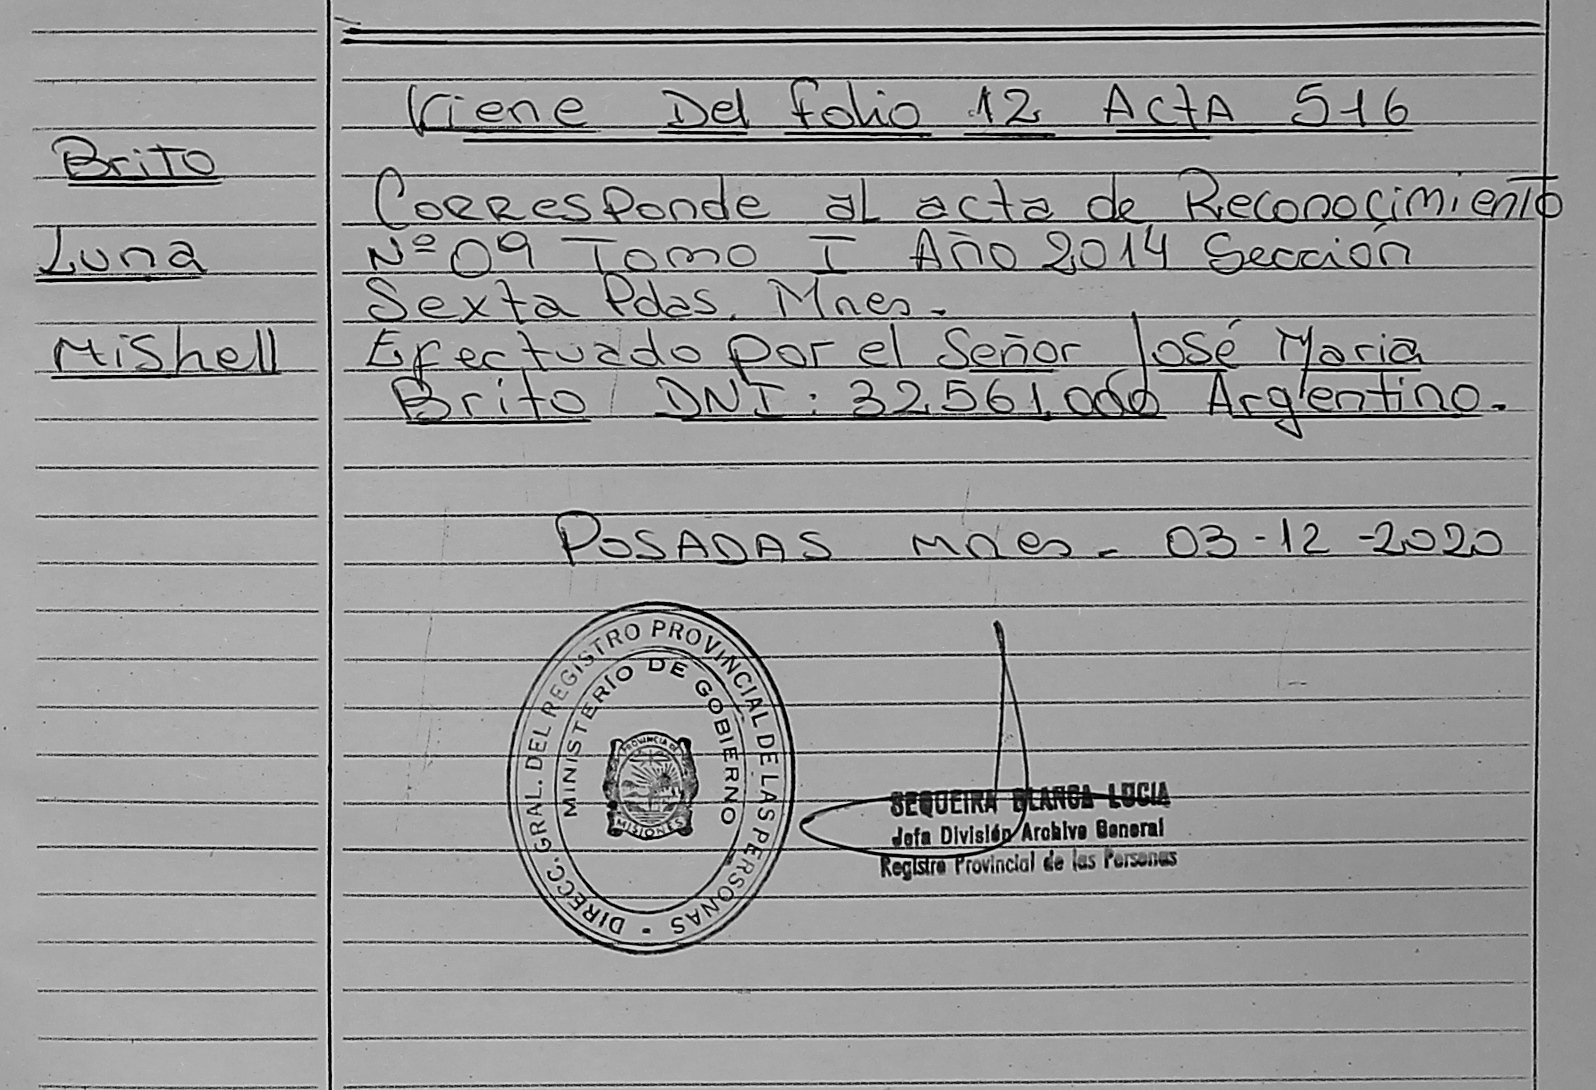 Viene Del folio 12 ActA 516
Brito
Luna
Mishell
Corresponde al acta de Reconocimiento
Nº 09 Tomo I Año 2014 Sección
Sexta Pdas. Mnes.
Efectuado por el Señor José Maria
Brito DNI: 32.561.060 Argentino.
POSADAS Mnes. 03-12-2020
DIRECC. GRAL. DEL REGISTRO PROVINCIAL DE LAS PERSONAS
MINISTERIO DE GOBIERNO
PROVINCIA DE
MISIONES
SEQUEIRA BLANCA LUCIA
Jefa División Archivo General
Registro Provincial de las Personas